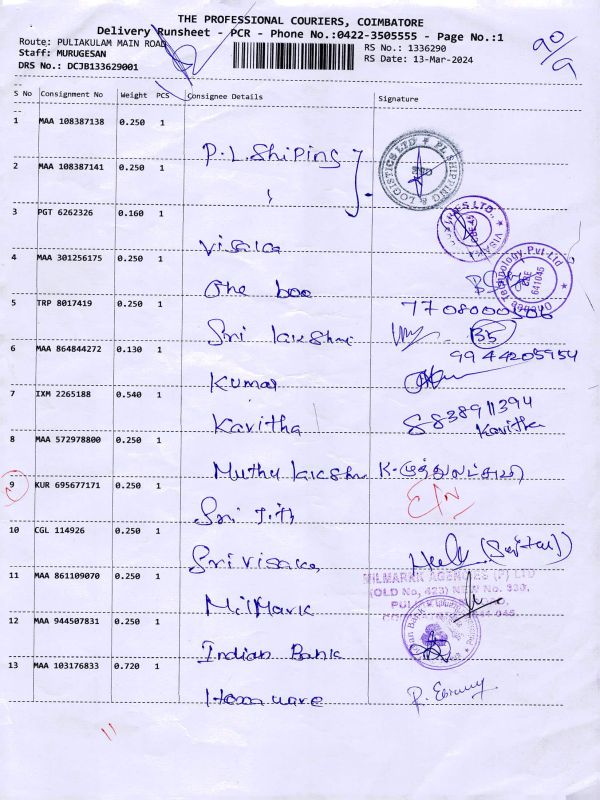 THE PROFESSIONAL COURIERS, COIMBATORE
Delivery Runsheet - PCR - Phone No.:0422-3505555 - Page No.:1
Route: PULIAKULAM MAIN ROAD
RS No.: 1336290
Staff: MURUGESAN
RS Date: 13-Mar-2024
DRS No.: DCJB133629001
90/9
S No Consignment No Weight PCS Consignee Details Signature
1 MAA 108387138 0.250 1 P.L.Shiping
2 MAA 108387141 0.250 1
PL SHIPPING & LOGISTICS LTD
3 PGT 6262326 0.160 1 Visaka
VISAKA
4 MAA 301256175 0.250 1 One boo
Technology Pvt Ltd
CBE
641045
5 TRP 8017419 0.250 1 Sri lakshmi
7708000506
35
6 MAA 864844272 0.130 1 Kumar
9944205954
7 IXM 2265188 0.540 1 Kavitha
8838911394
Kavitha
8 MAA 572978800 0.250 1 Muthu lakshmi K-முத்துலட்சுமி
9 KUR 695677171 0.250 1 Sri
10 CGL 114926 0.250 1 Sri Visaka
11 MAA 861109070 0.250 1 MilMark
MILMARKK AGENCIES (P) LTD
(OLD No, 423) NEW No. 339,
12 MAA 944507831 0.250 1 Indian Bank
13 MAA 103176833 0.720 1 Homeware
11